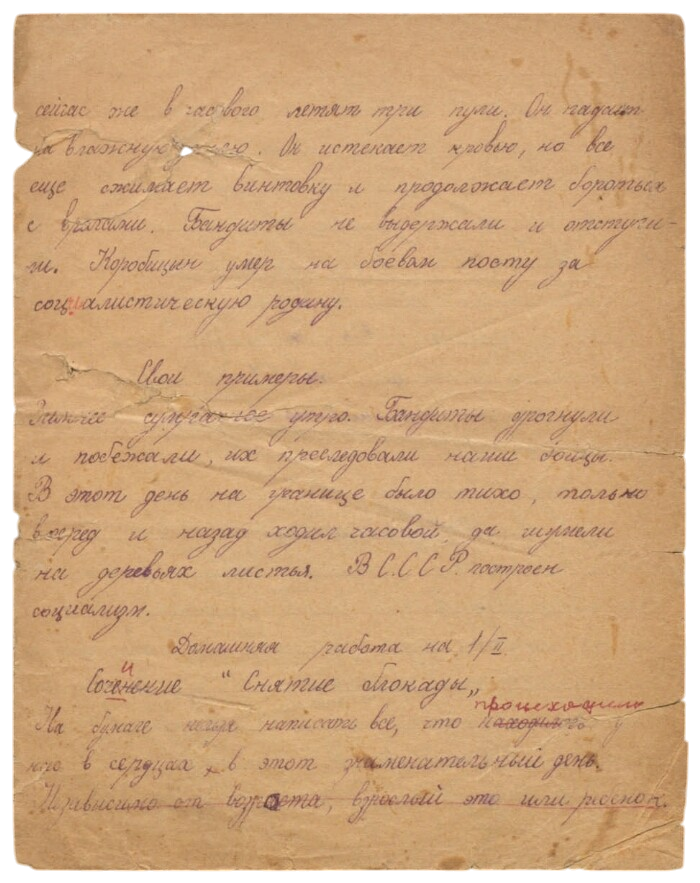 сейчас же в часового летят три пули. Он падает
на влажную землю. Он истекает кровью, но все
еще сжимает винтовку и продолжает бороться
с врагами. Бандиты не выдержали и отступи-
ли. Коробицын умер на боевом посту за
социалистическую родину.
Свои примеры.
Зимнее утро. Бандиты дрогнули
и побежали, их преследовали наши бойцы.
В этот день на границе было тихо, только
вперед и назад ходил часовой, да шумели
на деревьях листья. В С.С.С.Р. построен
социализм.
Домашняя работа на 1/II
Сочинение "Снятие блокады"
происходило
На бумаге нельзя написать все, что находилось у
в сердцах, в этот знаменательный день.
Независимо от возраста, взрослый это или ребенок.